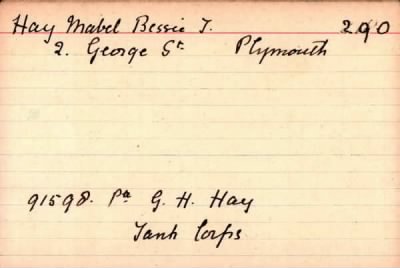 Hay Mabel Bessie J. 290
2. George St. Plymouth
91598. Pte G. H. Hay
Tank Corps